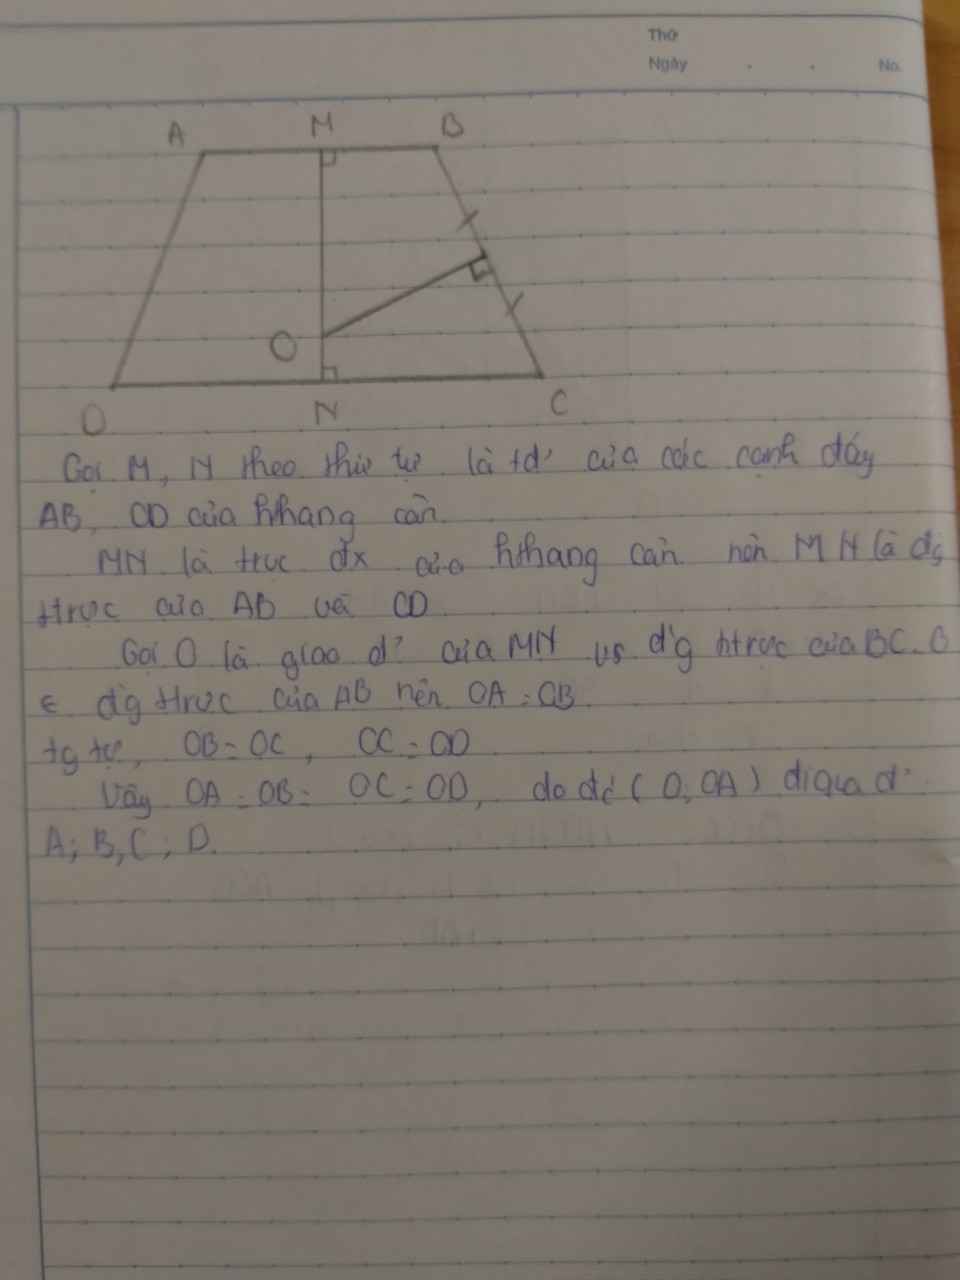 Thứ
Ngày . . No.
A M B
O
D N C
Gọi M, N theo thứ tự là tđ' của các cạnh đáy
AB, CD của hthang cân.
MN là trục đx của hthang cân nên MN là đg
ttrực của AB và CD
Gọi O là giao đ' của MN vs đ'g ttrực của BC. O
∈ đ'g ttrực của AB nên OA = OB
tg tự, OB = OC, OC = OD
Vậy OA = OB = OC = OD, do đó (O; OA) đi qua đ'
A; B, C; D.